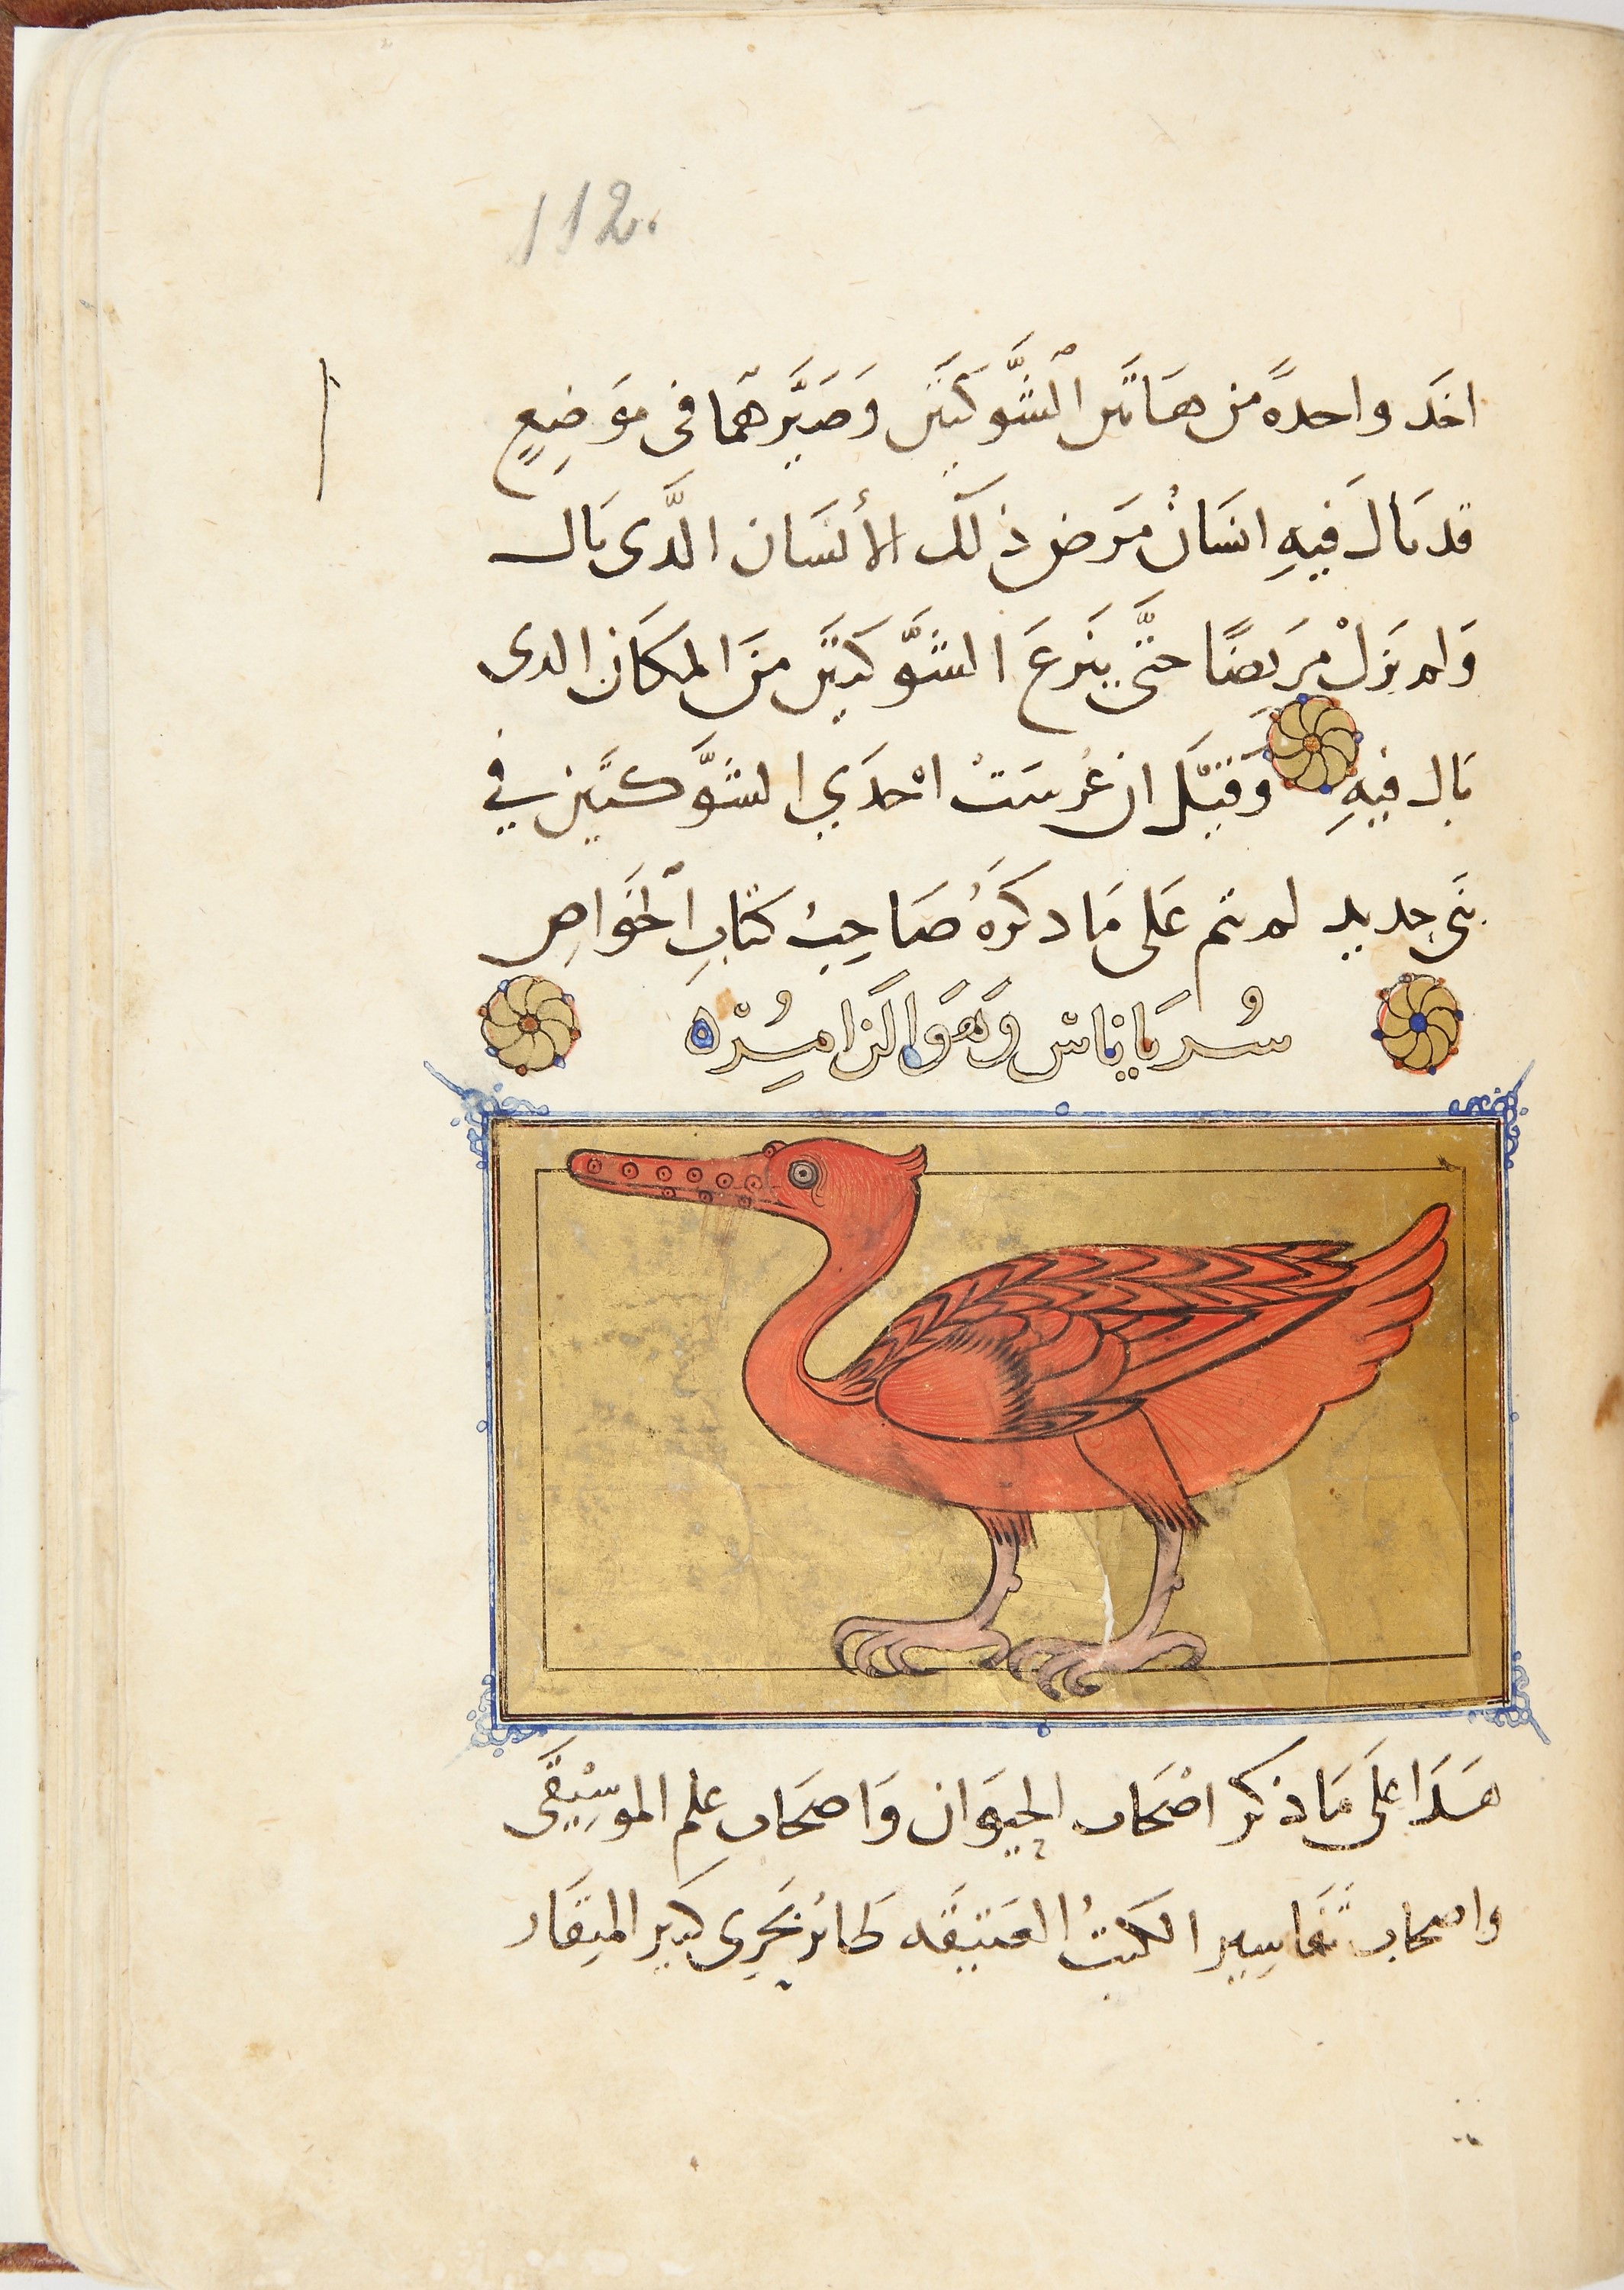 112.
اخَد واحدةً من هَاتَين الشَّوكَتَين وَصَيَّرهُمَا فى مَوَضِعٍ
قد بَالَ فيهِ انسَانٌ مَرَض ذلَكَ الأنسَان الَّدى بَال
وَلم يزَلْ مرَيضًا حتَّى ينَزعَ الشَّوَكتَين منَ المكَان الدى
بَال فيهِ وَقيْلَ ان غُرسَتْ احْدَي الشَوَّكتَين في
شى جديد لم يتم عَلى مَا دكَرَهُ صَاحِبُ كتَابِ الخَواصِ
سُريَاناس وَهَوَ الزامِسُرْه
هَدَا عَلَى مَا ذكر اصْحَاب الحيَوَان وَاصحَاب علم الموسِيْقَى
واصحاب تفَاسِير الكتُب العَتيقَه طَائر بَحرِى كبير المنِقَار